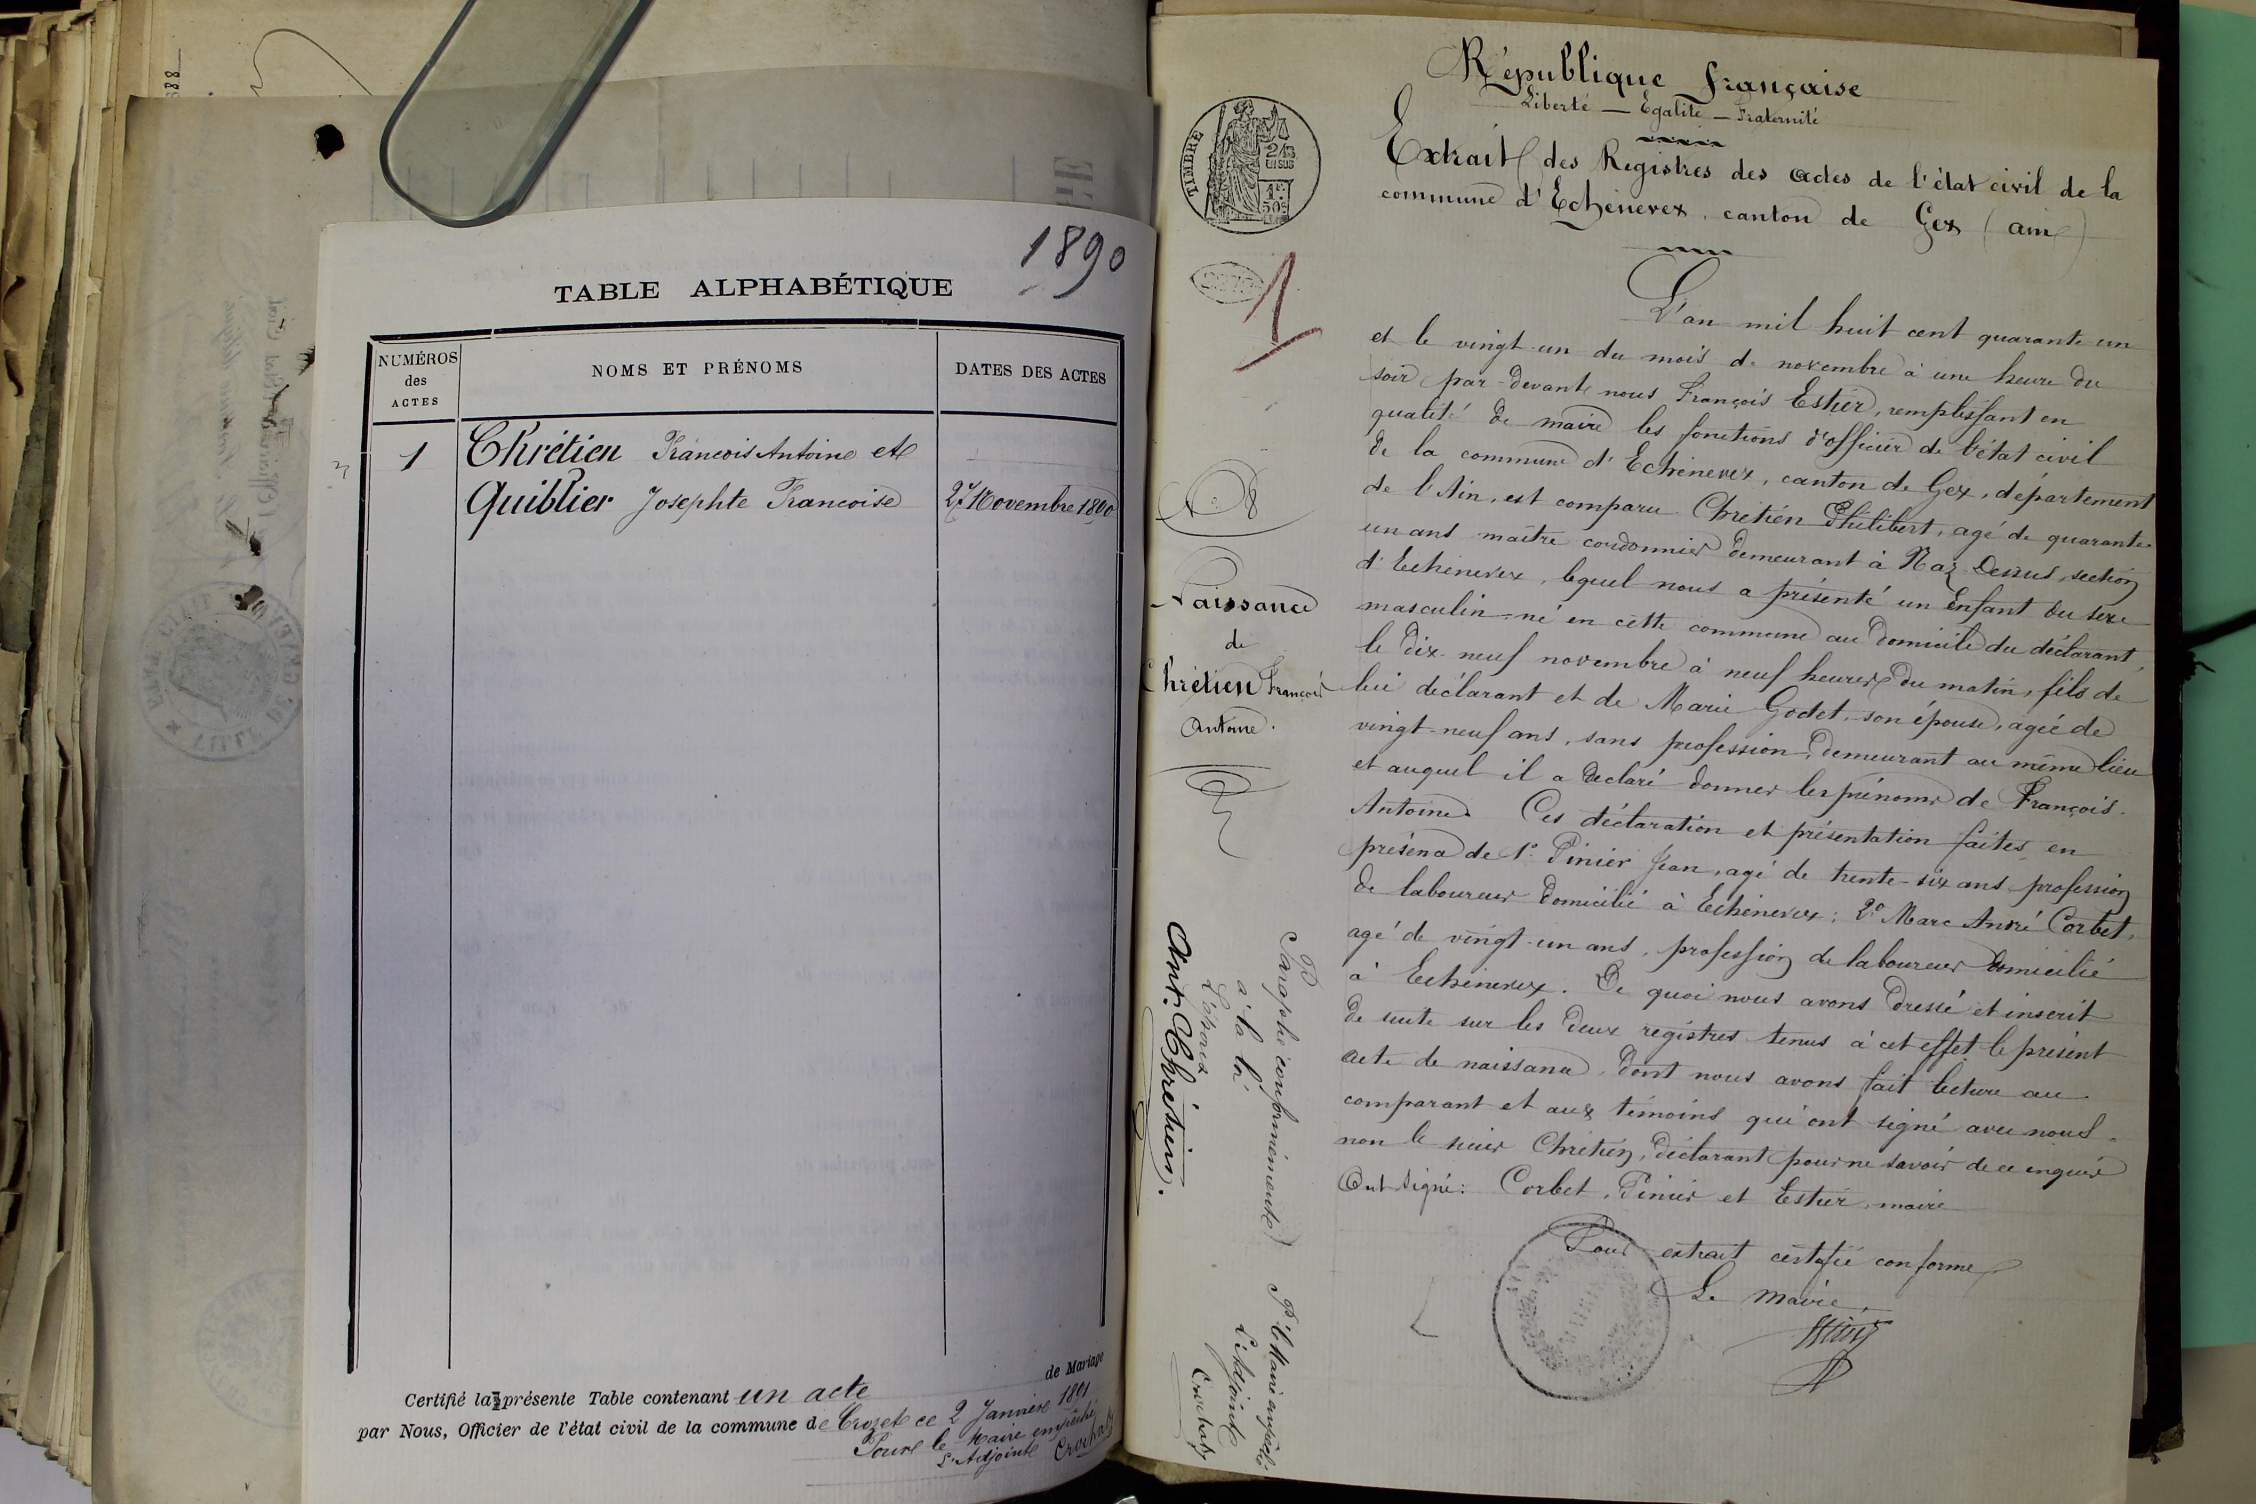 1890
TABLE ALPHABÉTIQUE
NUMÉROS
des
ACTES
NOMS ET PRÉNOMS
DATES DES ACTES
1
Chrétien François Antoine et
Quiblier Josephte Francoise
27 Novembre 1890
de Mariage
Certifié la présente Table contenant un acte
par Nous, Officier de l'état civil de la commune de Crozet ce 2 Janvier 1891
Pour le Maire empêché
L'Adjoint Crochat
République française
Liberté — Egalité — Fraternité
TIMBRE
2/10
EN SUS
1F
50c
Extrait des Registres des actes de l'état civil de la
commune d'Echenevex, canton de Gex (ain)
1
L'an mil huit cent quarante un
et le vingt-un du mois de novembre à une heure du
soir par-devant nous François Estier, remplissant en
qualité de maire les fonctions d'officier de l'état civil
de la commune d'Echenevex, canton de Gex, département
de l'Ain, est comparu Chrétien Philibert, agé de quarante-
un ans maître cordonnier demeurant à Naz Dessus, section
d'Echenevex, lequel nous a présenté un Enfant du sexe
masculin né en cette commune au domicile du déclarant,
le dix-neuf novembre à neuf heures du matin, fils de
lui déclarant et de Marie Godet, son épouse, agée de
vingt-neuf ans, sans profession, demeurant au même lieu
et auquel il a déclaré donner les prénoms de François-
Antoine. Ces déclaration et présentation faites en
présence de 1° Pinier Jean, agé de trente-six ans profession
de laboureur domicilié à Echenevex; 2° Marc André Corbet,
agé de vingt-un ans, profession de laboureur domicilié
à Echenevex. De quoi nous avons dressé et inscrit
de suite sur les deux registres tenus à cet effet le présent
acte de naissance, dont nous avons fait lecture au
comparant et aux témoins qui ont signé avec nous
non le sieur Chrétien, déclarant pour ne savoir de ce enquis
Ont signé: Corbet, Pinier et Estier, maire
Pour extrait certifié conforme
Le Maire,
N° 8
Naissance
de
Chrétien François
Antoine.
Paraphé conformémente
à la loi
L'époux
Ant. Chrétien.
Pr le Maire empêché
L'Adjointe
Crochat